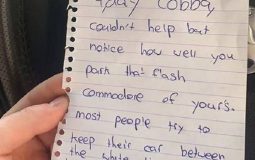 G'day Cobba,
couldn't help but
notice how well you
park that flash
commodore of your's.
most people try to
keep their car between
the white